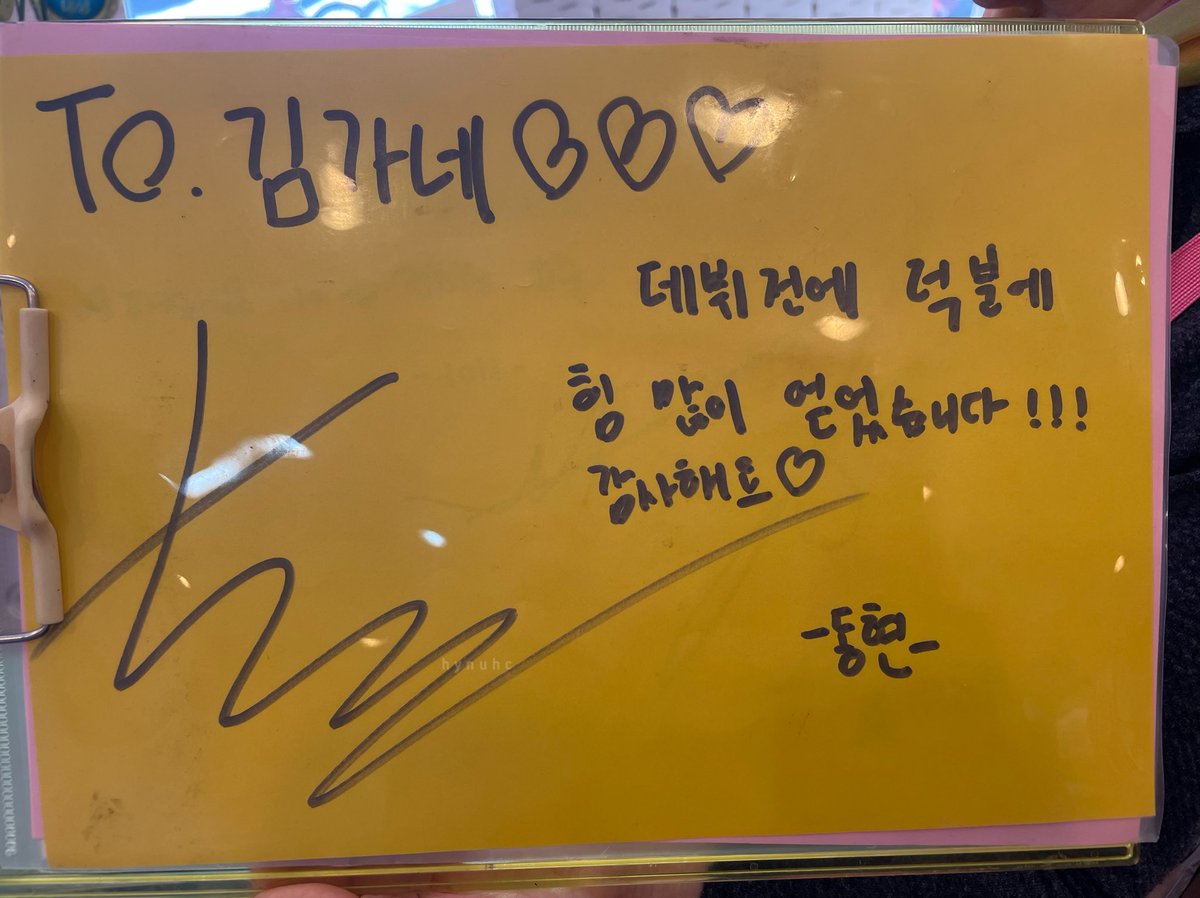 To. 김가네 ♡♡♡
데뷔전에 덕분에
힘 많이 얻었습니다!!!
감사해요♡
-동현-
hynuhc